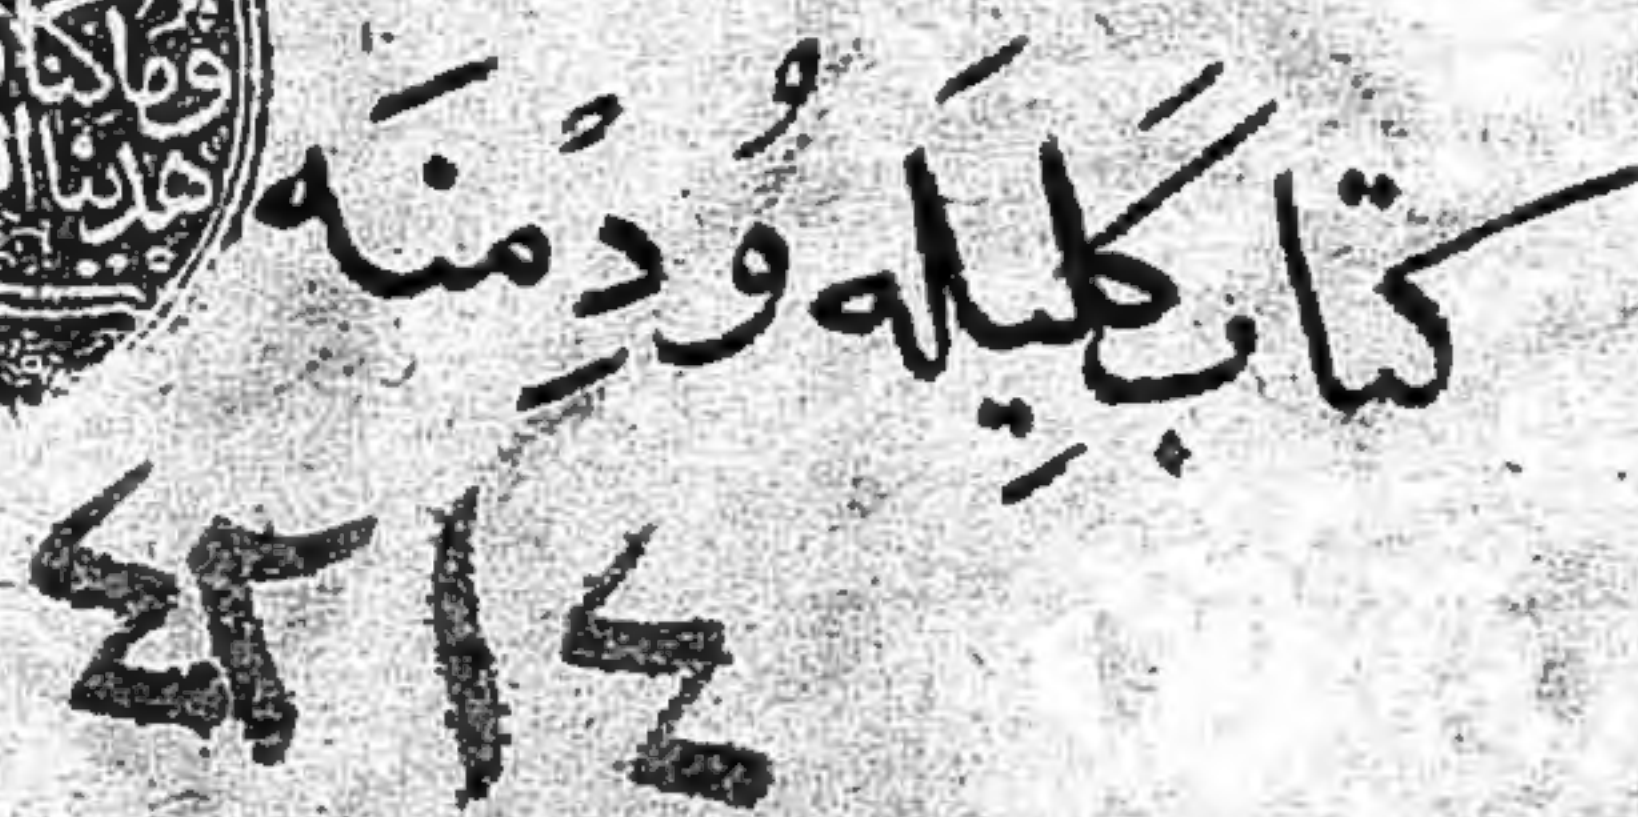 كتاب كَليِله وُدِمنَه
٤٢١٤
وما كنا
هدينا